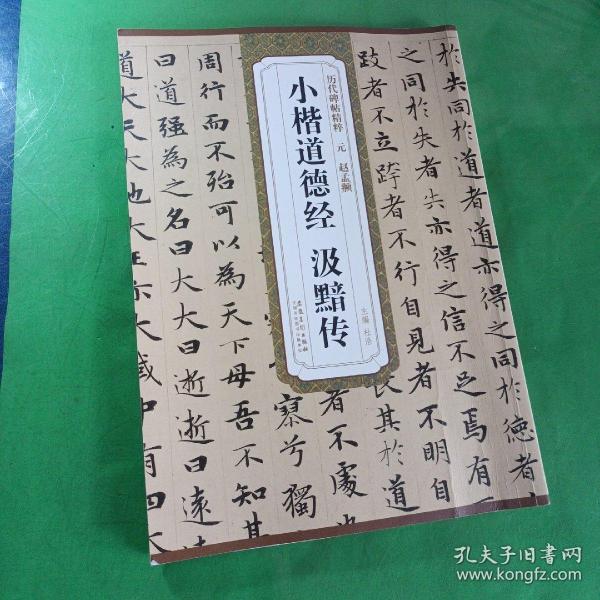 历代碑帖精粹 元 赵孟頫
小楷道德经 汲黯传
主编 杜浩
於失同於道者道亦得之同於德者
之同於失者失亦得之信不足焉有
跂者不立跨者不行自見者不明自
長其於道
者不處也
寡兮獨
周行而不殆可以為天下母吾不知其
曰道强為之名曰大大曰逝逝曰遠遠
道大天大地大王亦大域中有四大
孔夫子旧书网
www.kongfz.com